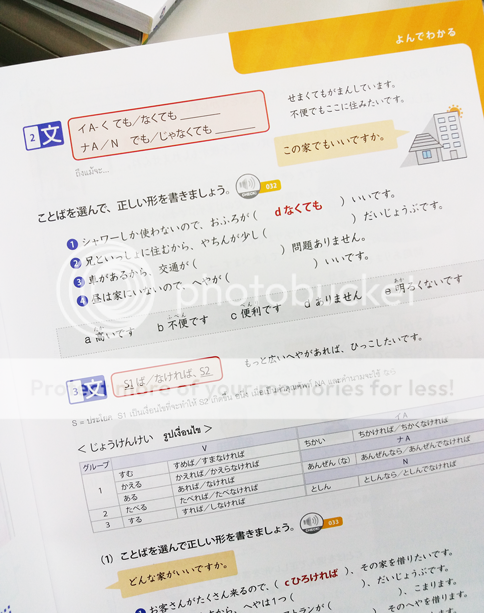 よんでわかる
2 文
イA-く ても／なくても ______
ナA／N でも／じゃなくても ______
せまくてもがまんしています。
不便でもここに住みたいです。
この家でもいいですか。
ถึงแม้จะ...
ことばを選んで、正しい形を書きましょう。 032
1 シャワーしか使わないので、おふろが（ dなくても ）いいです。
2 兄といっしょに住むから、やちんが少し（ ）だいじょうぶです。
3 車があるから、交通が（ ）問題ありません。
4 昼は家にいないので、へやが（ ）いいです。
a 高いです b 不便です c 便利です d ありません e 明るくないです
たか ふべん べんり あか
photobucket
Protect more of your memories for less!
3 文
S1ば／なければ、S2
もっと広いへやがあれば、ひっこしたいです。
＜じょうけんけい รูปเงื่อนไข＞
グループ V イA
1 すむ すめば／すまなければ ちかい ちかければ／ちかくなければ
かえる かえれば／かえらなければ ナA
ある あれば／なければ あんぜん（な） あんぜんなら／あんぜんでなければ
2 たべる たべれば／たべなければ N
3 する すれば／しなければ としん としんなら／としんでなければ
(1) ことばを選んで正しい形を書きましょう。 033
どんな家がいいですか。
お客さんがたくさん来るので、（ cひろければ ）、その家を借りたいです。
へやは1つ（ ）、だいじょうぶです。
ストランが（ ）、こまります。